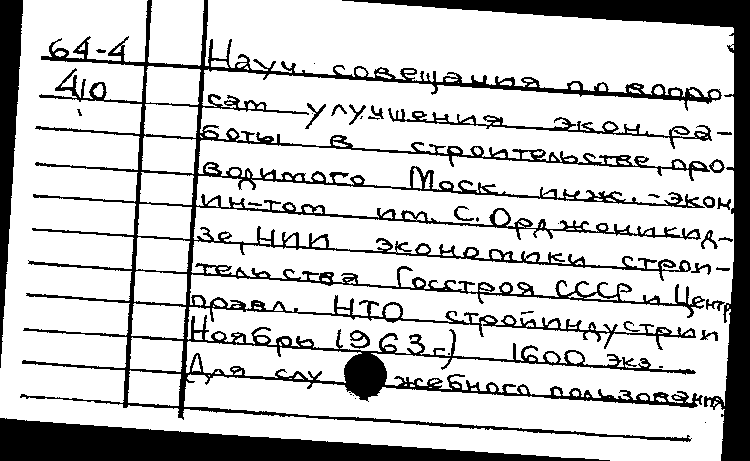 64-4
410
Науч. совещания по вопро-
сам улучшения экон. ра-
боты в строительстве, про-
водимого Моск. инж.-экон.
ин-том им. С. Орджоникид-
зе, НИИ экономики строи-
тельства Госстроя СССР и Центр.
правл. НТО стройиндустрии
Ноябрь 1963 г.) 1600 экз.
Для служебного пользования